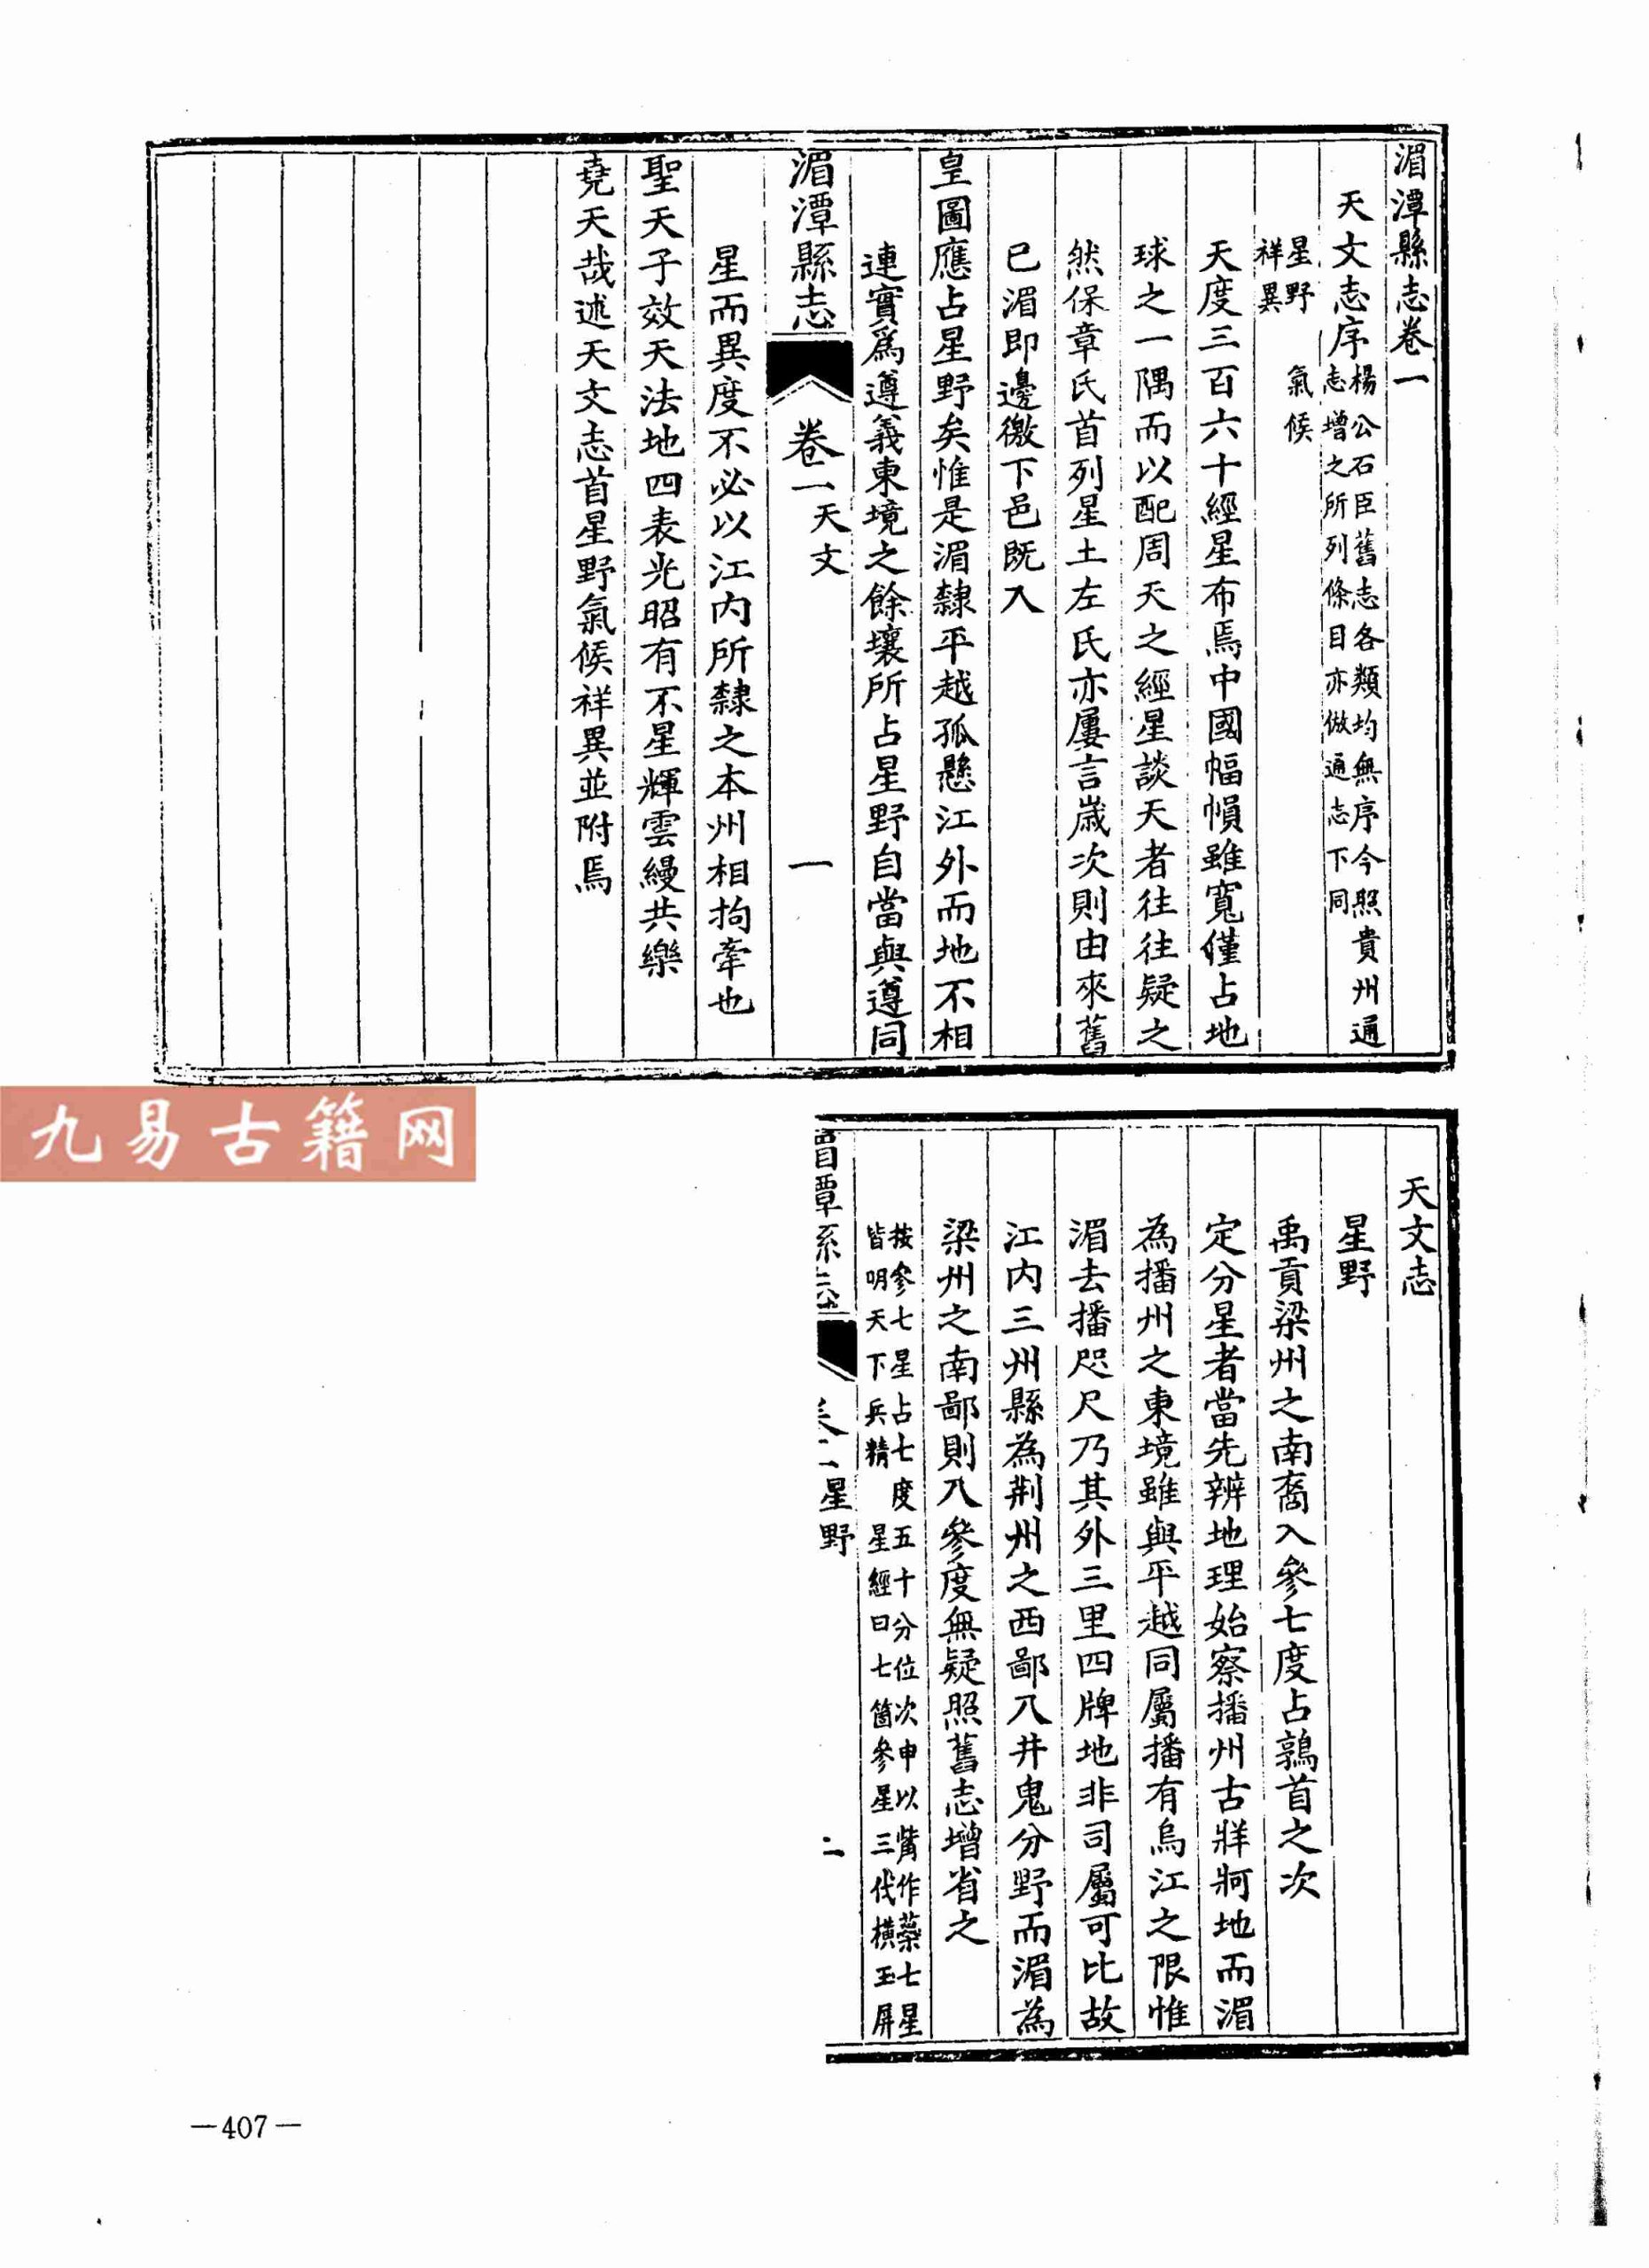 湄潭縣志卷一
天文志序
楊公石臣舊志各類均無序今照貴州通
志增之所列條目亦倣通志下同
星野 氣候
祥異
天度三百六十經星布焉中國幅幀雖寬僅占地
球之一隅而以配周天之經星談天者往往疑之
然保章氏首列星土左氏亦屢言歲次則由來舊
已湄即邊徼下邑既入
皇圖應占星野矣惟是湄隸平越孤懸江外而地不相
連實爲遵義東境之餘壤所占星野自當與遵同
湄潭縣志 卷一 天文 一
星而異度不必以江內所隸之本州相拘牽也
聖天子效天法地四表光昭有不星輝雲縵共樂
堯天哉述天文志首星野氣候祥異並附焉
九易古籍网
天文志
星野
禹貢梁州之南裔入參七度占鶉首之次
定分星者當先辨地理始察播州古牂牁地而湄
為播州之東境雖與平越同屬播有烏江之限惟
湄去播咫尺乃其外三里四牌地非司屬可比故
江內三州縣為荆州之西鄙入井鬼分野而湄為
梁州之南鄙則入參度無疑照舊志增省之
按參七星占七度五十分位次申以觜作蘂七星
皆明天下兵精 星經曰七箇參星三代橫玉屏
星野 二
—407—